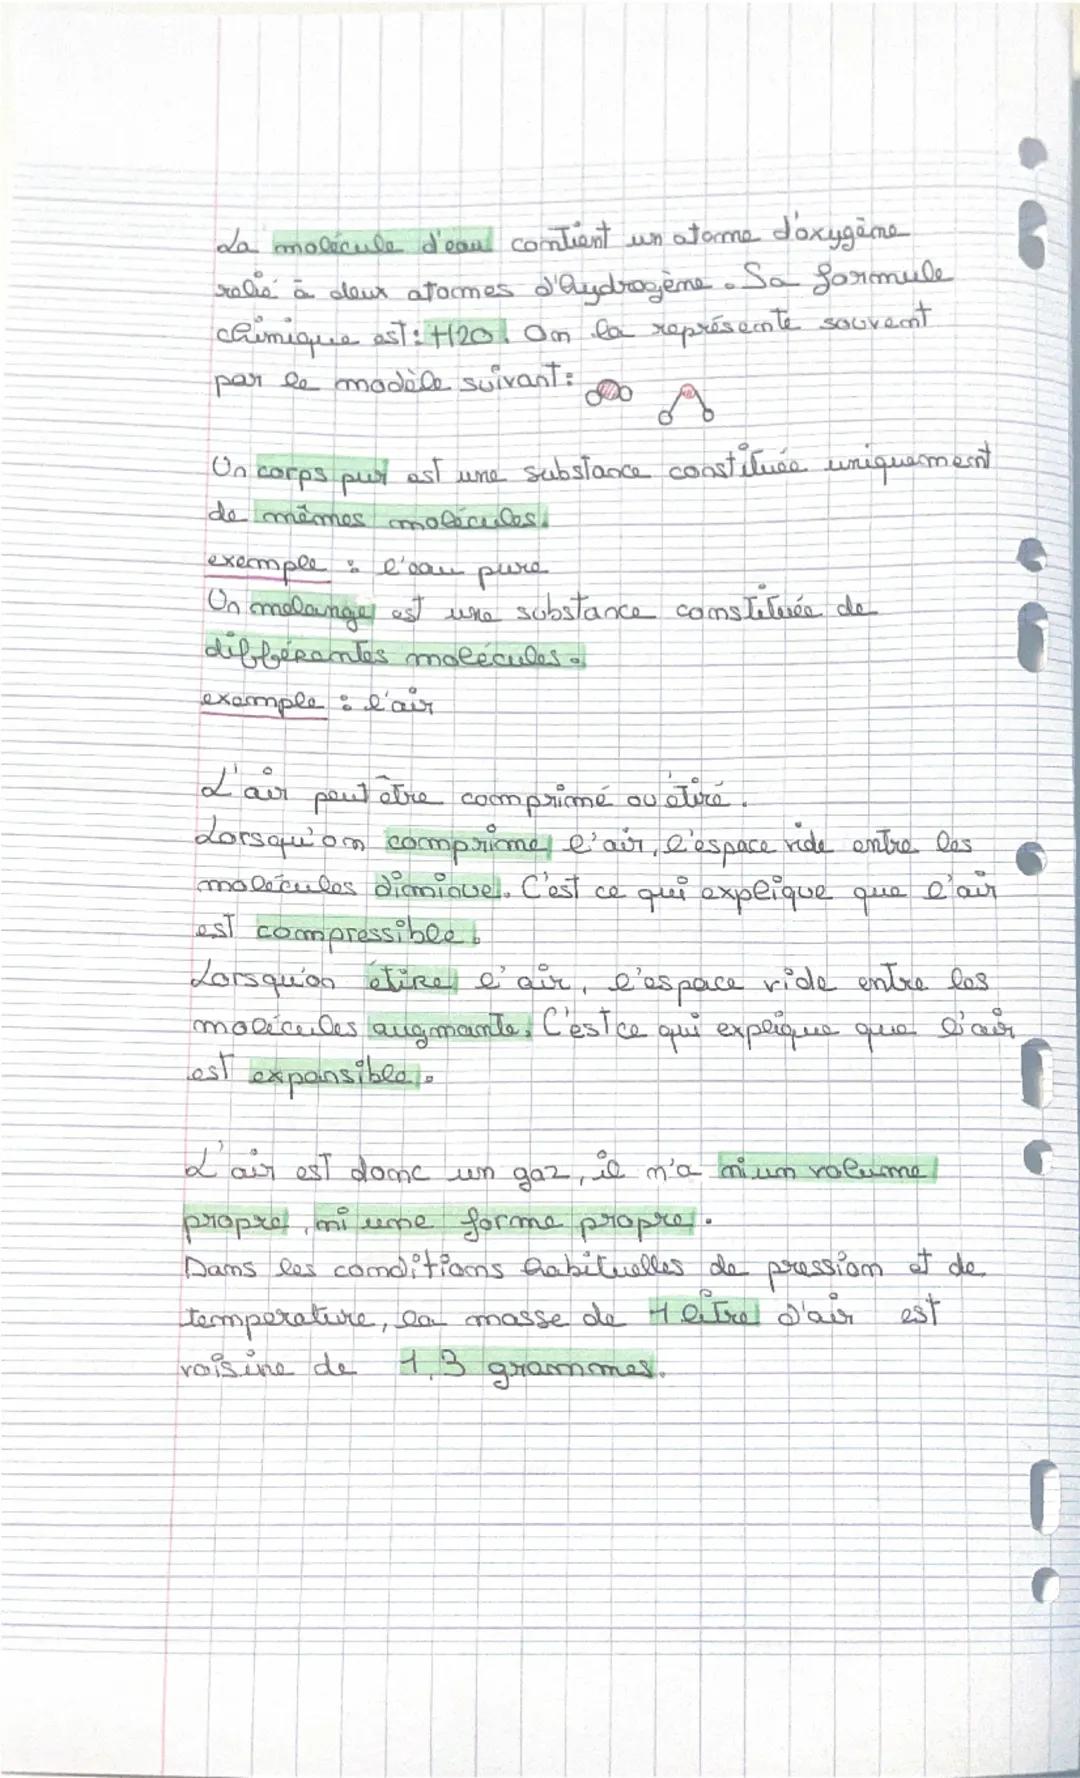 La molécule d'eau contient un atome d'oxygène
relié à deux atomes d'hydrogène. Sa formule
chimique est : H2O. On la représente souvent
par le modèle suivant :
Un corps pur est une substance constituée uniquement
de mêmes molécules.
exemple : l'eau pure
Un melange est une substance constituée de
différentes molécules.
exemple : l'air
L'air peut être comprimé ou étiré.
Lorsqu'on comprime l'air, l'espace vide entre les
molécules diminue. C'est ce qui explique que l'air
est compressible.
Lorsqu'on étire l'air, l'espace vide entre les
molécules augmente. C'est ce qui explique que l'air
est expansible.
L'air est donc un gaz, il n'a ni un volume
propre, ni une forme propre.
Dans les conditions habituelles de pression et de
temperature, la masse de 1 litre d'air est
voisine de 1,3 grammes.